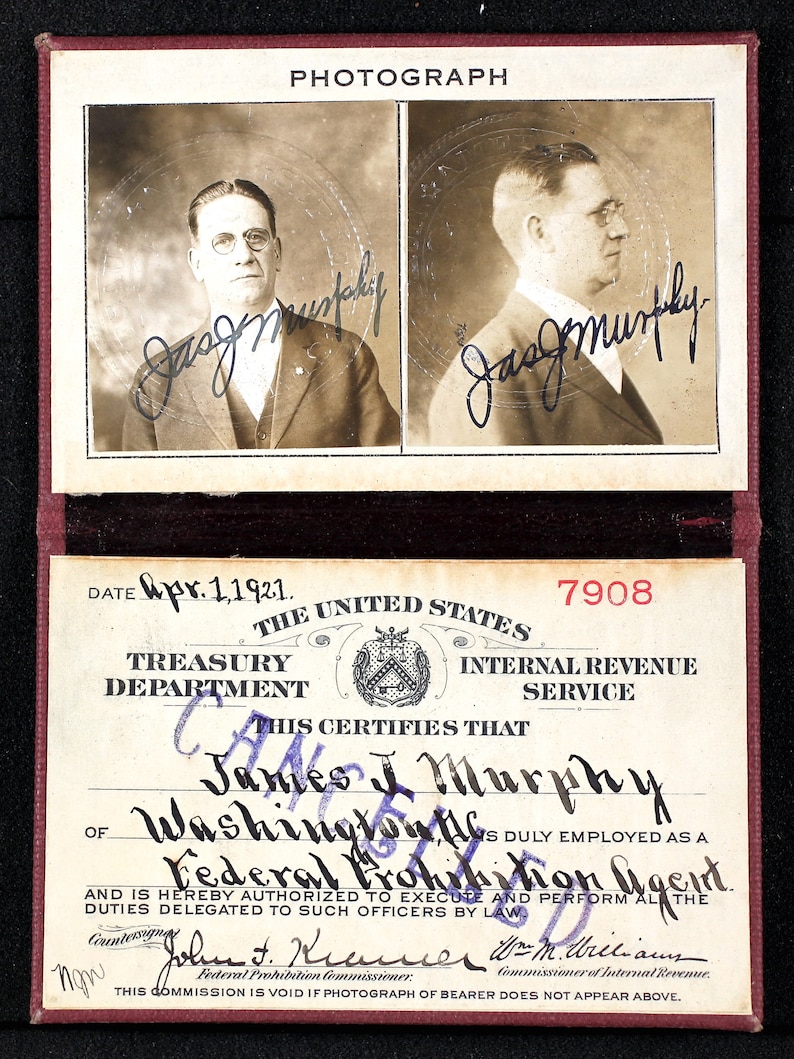 PHOTOGRAPH
Jas J Murphy
Jas J Murphy.
DATE Apr. 1, 1921.
7908
THE UNITED STATES
TREASURY DEPARTMENT
INTERNAL REVENUE SERVICE
THIS CERTIFIES THAT
CANCELLED
James J Murphy
OF Washington, D.C. IS DULY EMPLOYED AS A
Federal Prohibition Agent.
AND IS HEREBY AUTHORIZED TO EXECUTE AND PERFORM ALL THE
DUTIES DELEGATED TO SUCH OFFICERS BY LAW.
Countersigned
John F. Kramer
Wm M. Williams
Federal Prohibition Commissioner.
Commissioner of Internal Revenue.
THIS COMMISSION IS VOID IF PHOTOGRAPH OF BEARER DOES NOT APPEAR ABOVE.